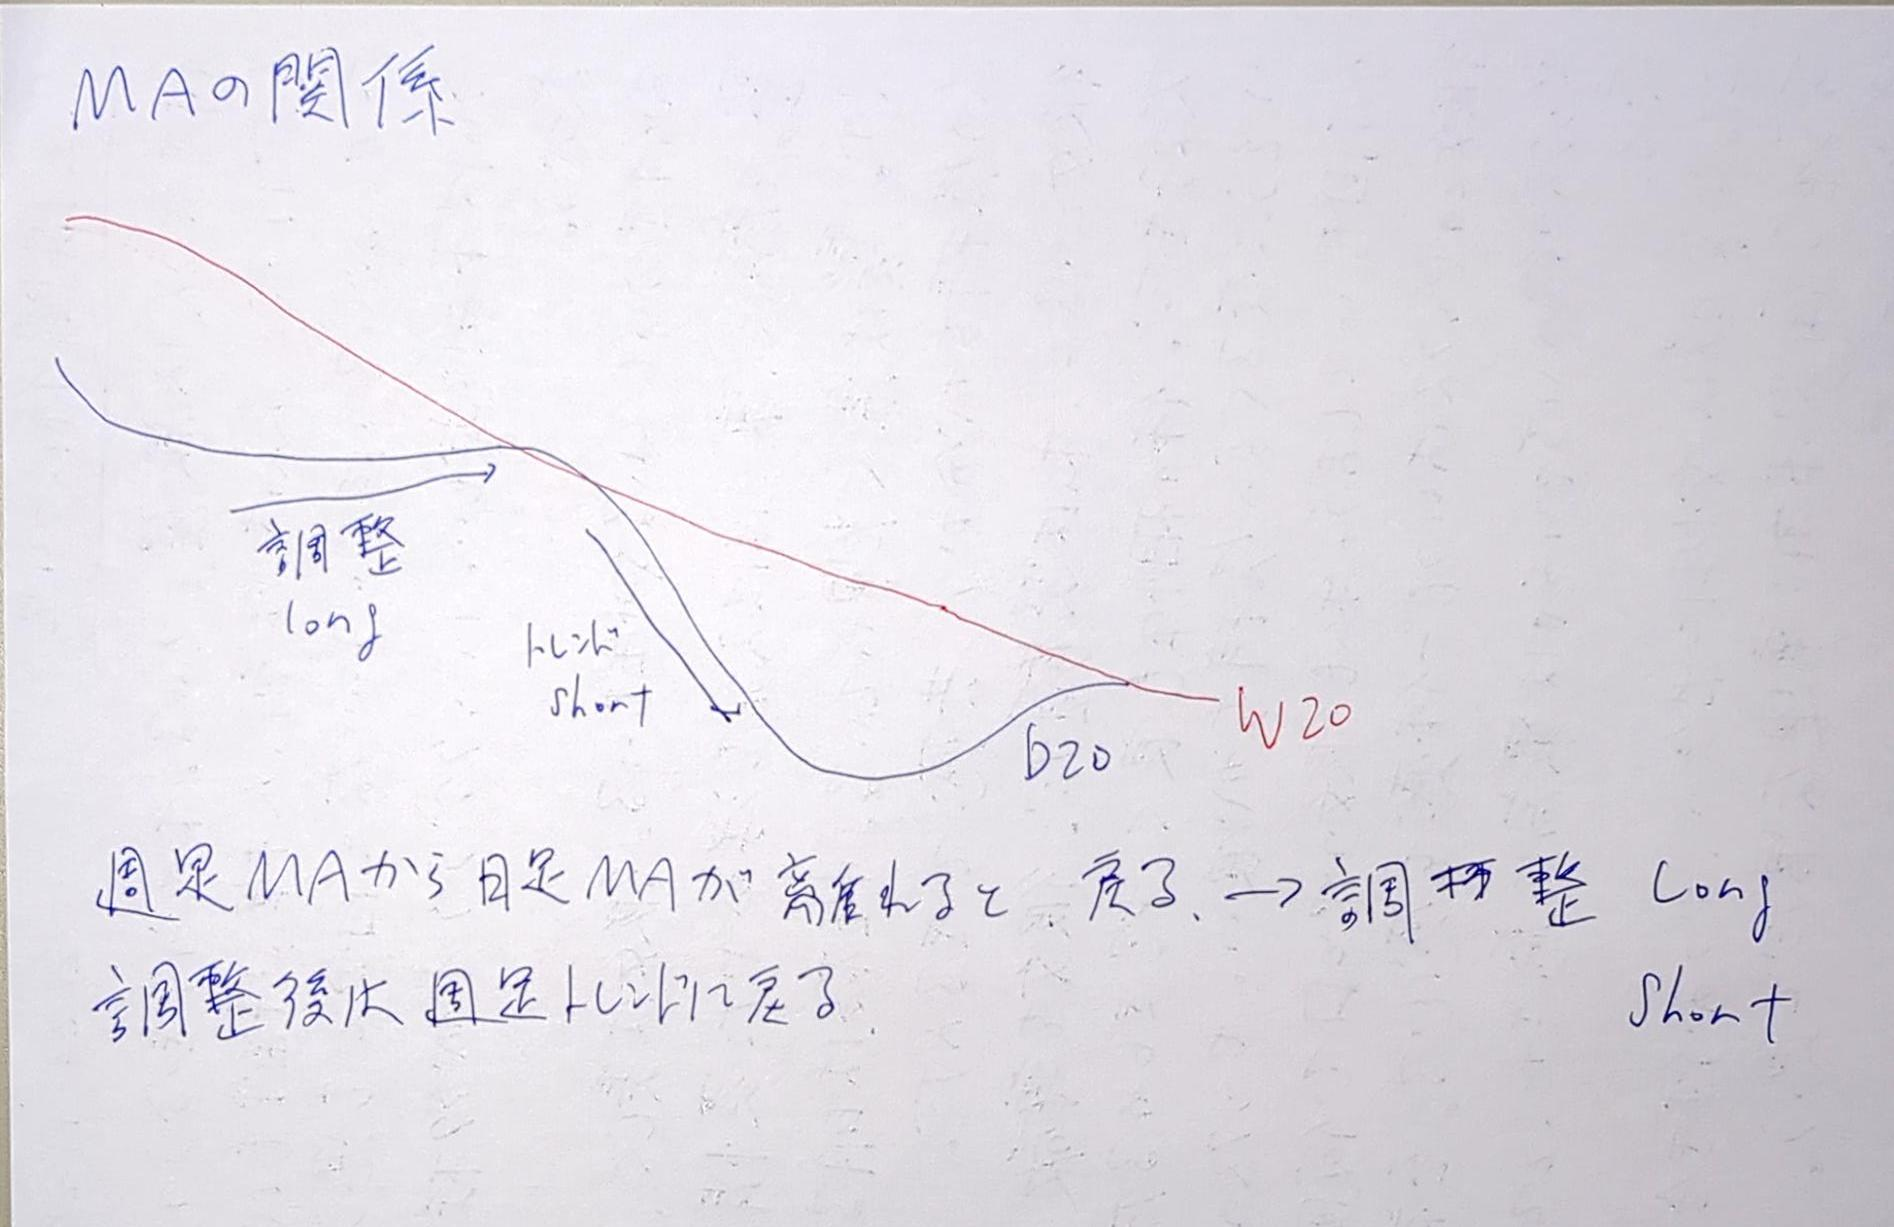 MAの関係
調整
long
トレンド
short
D20
W20
週足MAから日足MAが離れると、戻る、→調整 Long
調整後は週足トレンドに戻る. Short